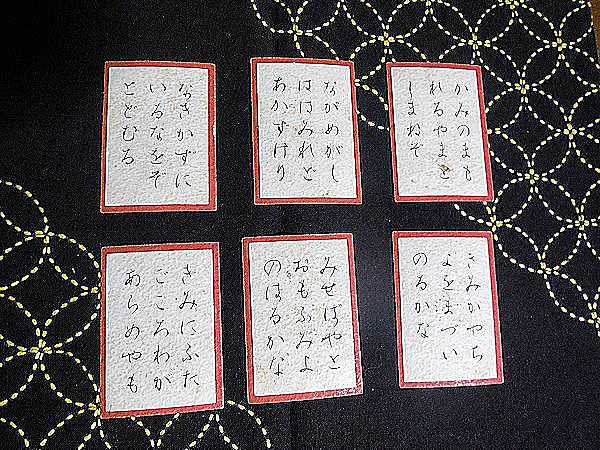 かみのまも
れるやまと
しまねぞ
ながめがし
ははみれど
あかずけり
なきかずに
いるなをぞ
とどむる
きみがやち
よをまづい
のるかな
みせばやと
おもふみよ
のはるかな
きみにふた
ごころわが
あらめやも